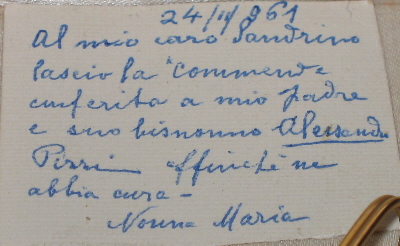 24/11/961
Al mio caro Sandrino
lascio la "Commenda
conferita a mio padre
e suo bisnonno Alessandro
Pizzi affinché ne
abbia cura -
Nonna Maria